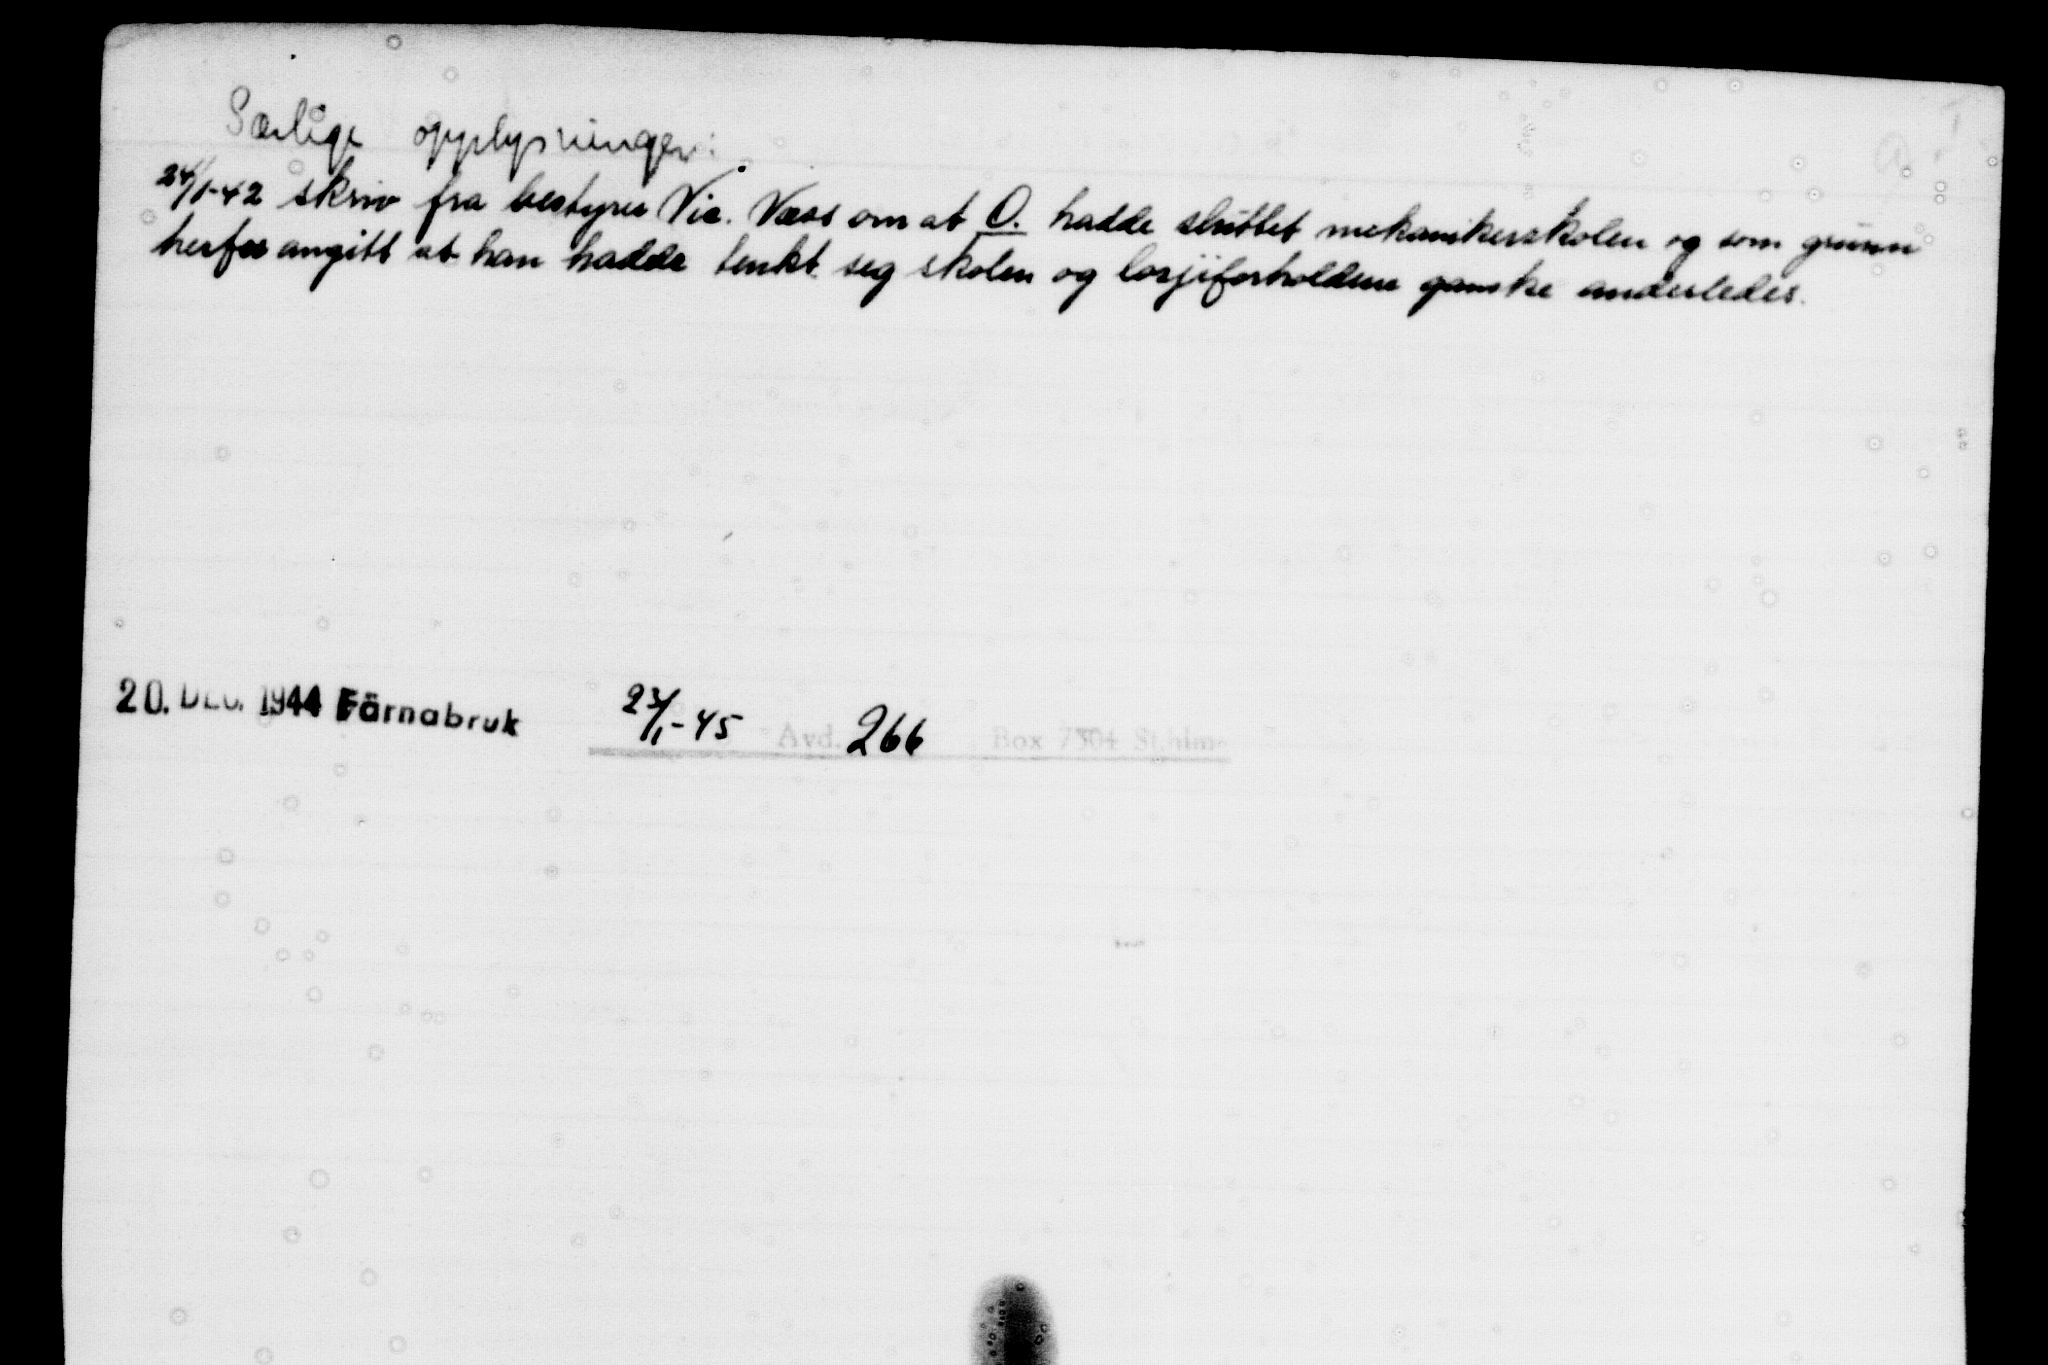 Særlige opplysninger:
24/1-42 skriv fra bestyrer Vic. Væss om at O. hadde sluttet mekanikerskolen og som grunn
herfor angitt at han hadde tenkt seg skolen og losjiforholdene ganske anderledes.
20. DEC. 1944 Färnabruk 23/1-45 Avd. 266 Box 7304 Sthlm